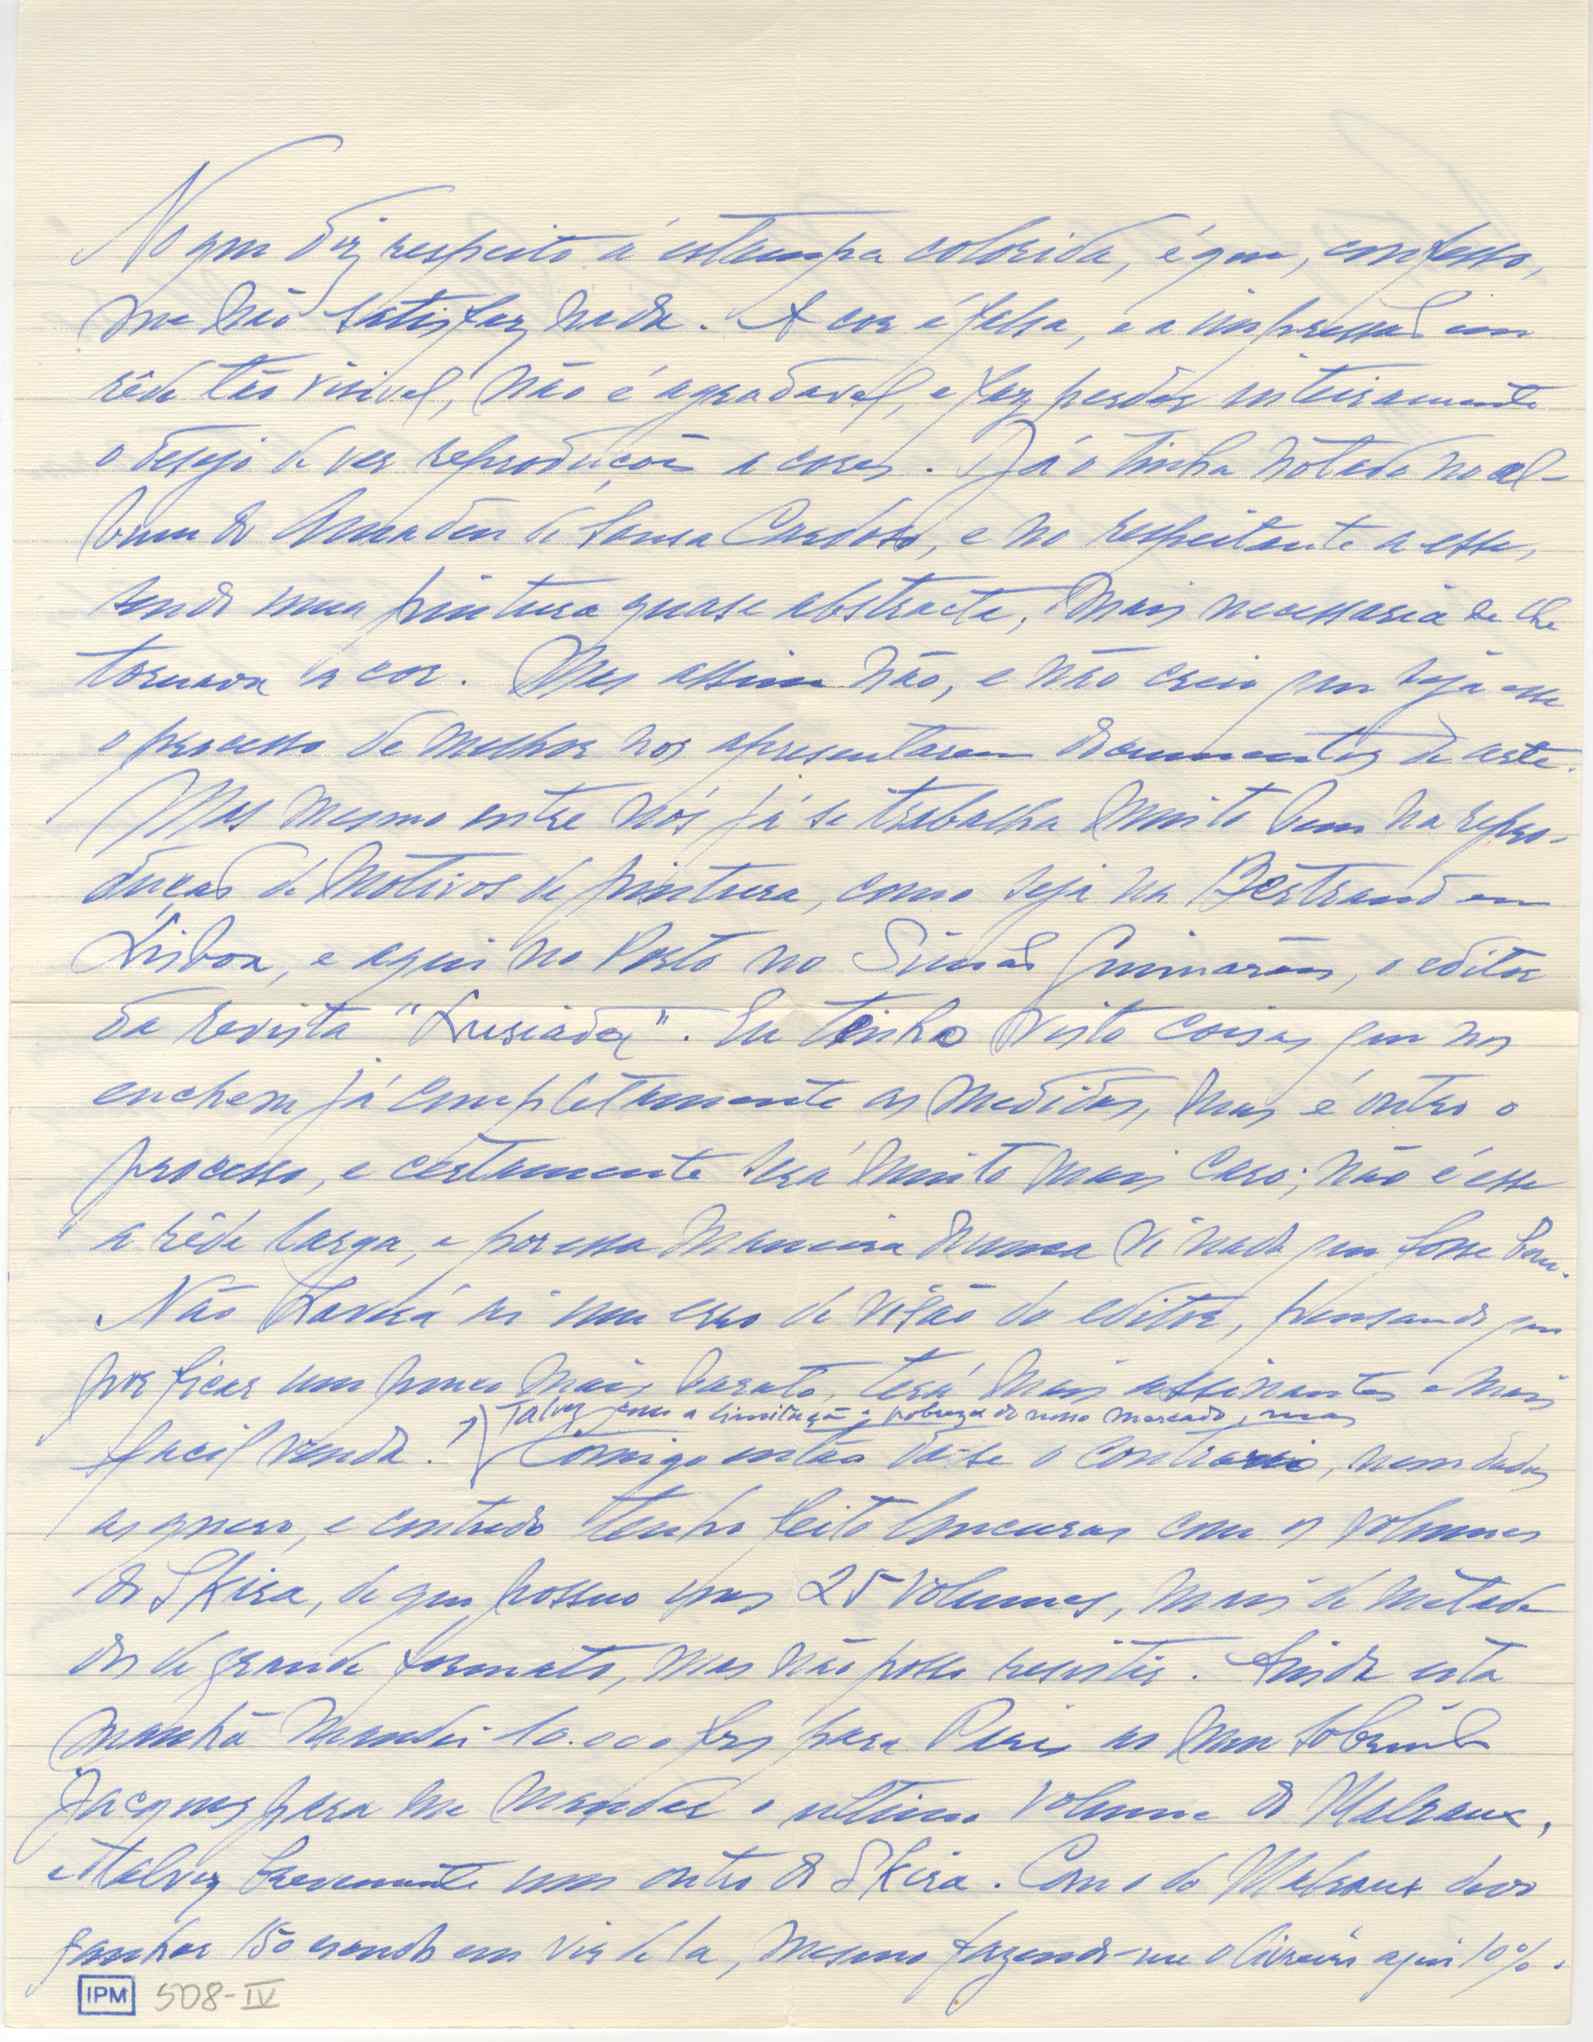 No que diz respeito á estampa colorida, é que, confesso,
me não satisfaz nada. A cor é falsa, e a impressão em
rêde tão visivel, não é agradavel, e faz perder inteiramente
o desejo de ver reproduções a cores. Já o tinha notado no al-
bum do Amadeu de Sousa Cardoso, e no respeitante a esse,
sendo uma pintura quase abstracta, mais necessaria se lhe
tornava a cor. Mas assim não, e não creio que seja esse
o processo de melhor nos apresentarem documentos de arte.
Mas mesmo entre nós já se trabalha muito bem na repro-
dução de motivos de pintura, como seja na Bertrand em
Lisboa, e aqui no Porto no Simão Guimarães, o editor
da revista "Lusiada". Eu tenho visto coisas que nos
enchem já completamente as medidas, mas é outro o
processo, e certamente será muito mais caro; não é esse
a rêde larga, e por essa maneira nunca vi nada que fosse bem.
Não haverá aí um erro de visão do editor, pensando que
por ficar um pouco mais barato, terá mais assinantes e mais
facil venda.
Talvez com a limitação e pobreza do nosso mercado, mas
Comigo então dá-se o contrario, nem dadas
as quero, e contudo tenho feito loucuras com os volumes
do Skira, de que possuo uns 25 volumes, mais de metade
dos de grande formato, mas não posso resistir. Ainda esta
manhã mandei 10.000 frs para Paris ao meu sobrinho
Jacques para me mandar o ultimo volume do Malraux,
e talvez brevemente um outro do Skira. Com o do Malraux devo
ganhar 150 escudos em vir de la, mesmo fazendo-me o livreiro aqui 10%.
IPM 508-IV